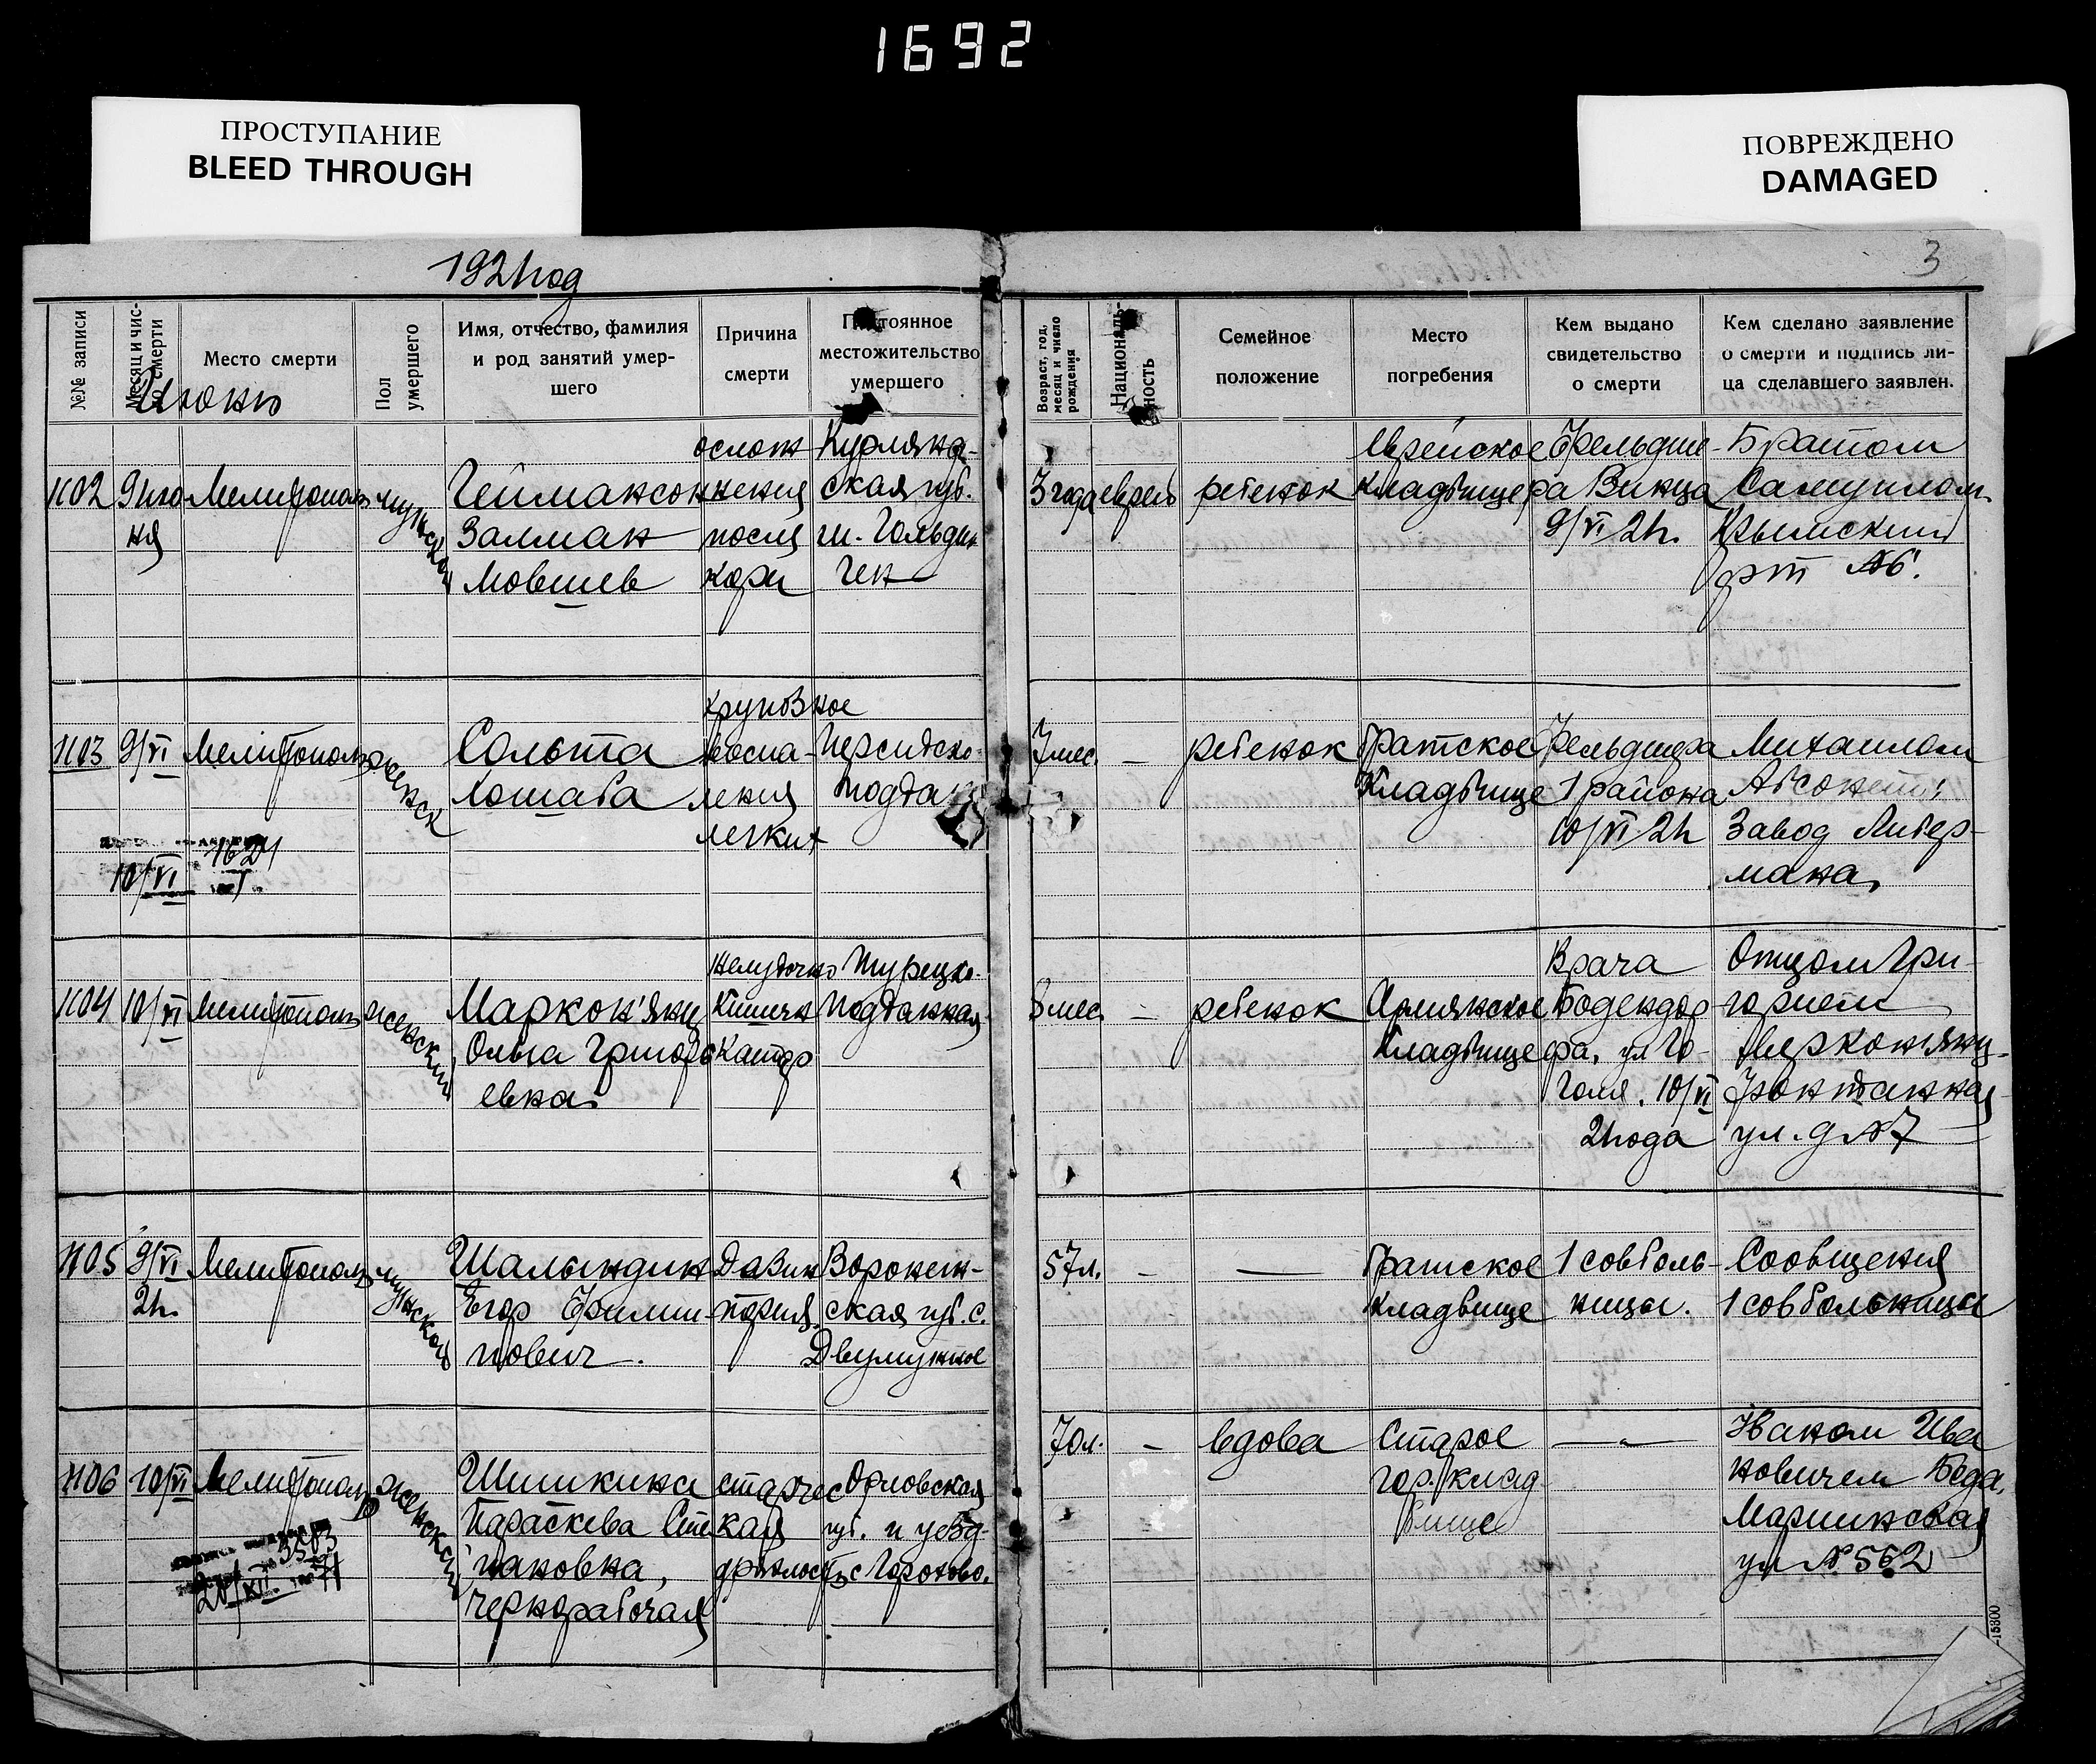 1692
ПРОСТУПАНИЕ
BLEED THROUGH
ПОВРЕЖДЕНО
DAMAGED
1921 год
3
№№ записи
Месяц и число смерти
Июнь
Место смерти
Пол умершего
Имя, отчество, фамилия
и род занятий умер-
шего
Причина
смерти
Постоянное
местожительство
умершего
Возраст, год,
месяц и число
рождения
Националь-
ность
Семейное
положение
Место
погребения
Кем выдано
свидетельство
о смерти
Кем сделано заявление
о смерти и подпись ли-
ца сделавшего заявлен.
1102
9 ию
ня
Мелитополь
мужской
Геймансон
Залман
Мовшев
ослож
нения
после
кори
Курлянд-
ская губ.
м. Гольдин
ген
3 года
еврей
ребенок
Еврейское
кладбище
Фельдше-
ра Винца
9/VI 21г.
Братом
Самуилом
Крымский
№6.
1103
9/VI
Мелитополь
женск
Сольта
Лошаба
крупозное
воспа-
ления
легких
Персидско-
поддан
10/VI
7 мес.
—
ребенок
Братское
Кладбище
Фельдшера
1 района
10/VI 21г
Михаилом
Завод Либер-
мана
1104
10/VI
Мелитополь
женский
Маркон'янц
Ольга Григорь
евна
желудочно
кишечн
катар
Турецко-
подданная
8 мес.
—
ребенок
Армянское
Кладбище
Врача
Бодендор
фа, ул Го-
голя. 10/VI
21 года
Отцом Гри-
горием
Меркон'янц
Фонтанная
ул. д №7
1105
9/VI
21г.
Мелитополь
мужской
Шалындин
Егор Филип-
пович.
Дизин
терия.
Воронеж-
ская губ. с.
Двулучное
57 л.
—
—
Братское
кладбище
1 сов боль-
ницы.
Сообщения
1 сов больницы
1106
10/VI
Мелитополь
женский
Шишкина
Параскева Сте
пановна,
Чернорабочая
старчес
кая
дряхлость
Орловская
губ. и уезд-
с Горохово.
20/XII
70 л.
—
вдова
Старое
гор. клад
бище
— „ —
Иваном Ива
новичем Беда,
Мариинская
ул № 562
15300